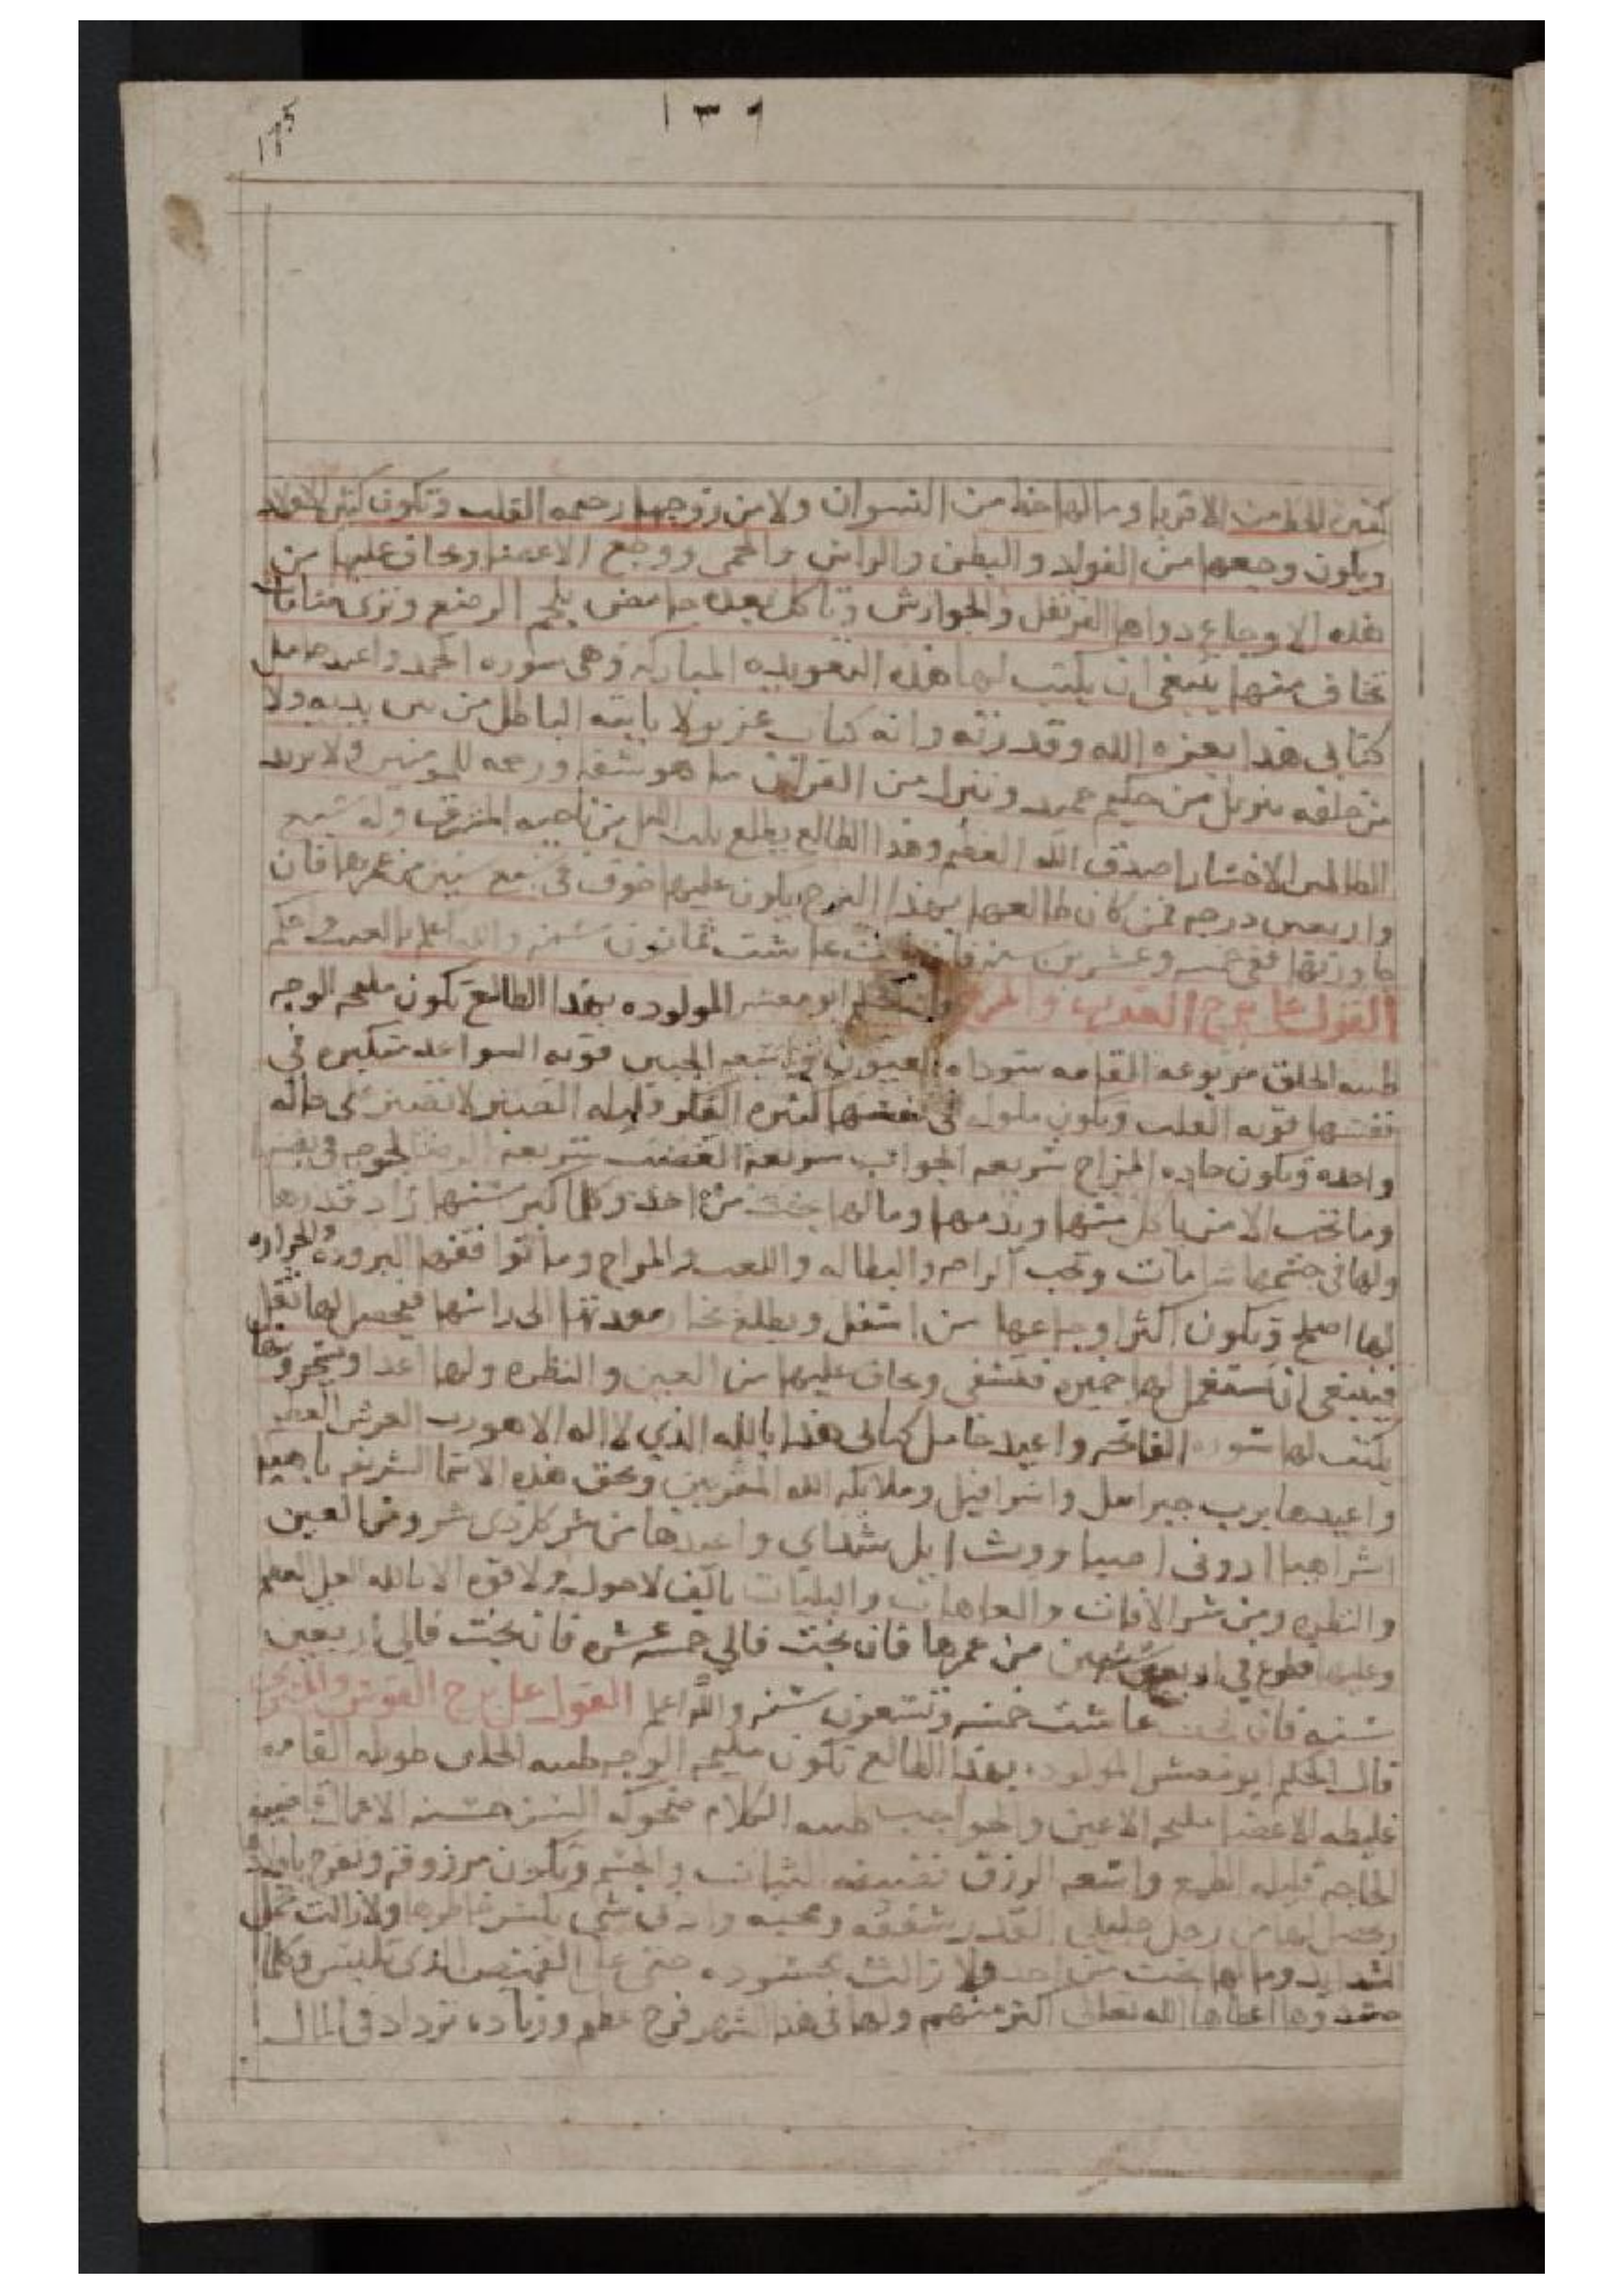 ١٣٩
الاقربا وما لها حظ من النسوان ولا من زوجها رحيمه القلب وتكون كثيره الاولاد
ويكون وجعها من الفواد والبطن والراس والحمى ووجع الاعضا ويخاف عليها من
هذه الاوجاع دواها القرنفل والجوارش وتاكل بعده حامض بلحم الرضع وترى منامات
تخاف منها ينبغي ان يكتب لها هذه التعويده المباركه وهي سوره الحمد واعيد حامل
كتابي هذا بعزه الله وقدرته وانه كتاب عزيز لا ياتيه الباطل من بين يديه ولا
من خلفه تنزيل من حكيم حميد وننزل من القران ما هو شفا ورحمه للمومنين ولا يزيد
الظالمين الا خسارا صدق الله العظيم وهذا الطالع يطلع ثلث الليل من ناحيه المشرق وله سبع
واربعين درجه فمن كان طالعها بهذا البرج يكون عليها خوف في سبع سنين من عمرها فان
جاوزتها ففي خمسه وعشرين سنه عاشت ثمانون سنه والله اعلم بالغيب واحكم
القول على برج العقرب والمريخ قال الحكيم ابو معشر المولوده بهذا الطالع تكون مليحه الوجه
طيبه الخلق مربوعه القامه سوداه العيون واسعه الجبين قويه السواعد متكبره في
نفسها قويه القلب وتكون ملول في نفسها كثيره الفكر قليله الصبر لا تصبر على حاله
واحده وتكون حاده المزاج سريعه الجواب سريعه الغضب سريعه الرضا لحوحه في نفسها
وما تحب الا من ياكل منها ويذمها وما لها بخت من احد وكلما كبر سنها زاد قدرها
ولها في جسمها شامات وتحب الراحه والبطاله واللعب والمزاح وما توافقها البروده والحراره
لها اصلح وتكون اكثر اوجاعها من اسفل ويطلع بخار معدتها الى راسها فيحصل لها ثقل
فينبغي ان تستعمل لها خميره فتشفى ويخاف عليها من العين والنظره ولها اعدا ويسحروها
يكتب لها سوره الفاتحه واعيد حامل كتابي هذا بالله الذي لا اله الا هو رب العرش العظيم
واعيدها برب جبرايل واسرافيل وملايكه الله المقربين وبحق هذه الاسما الشريفه باهيا
اشراهيا ادوني اصباووث ايل شداي واعيدها من شر كل ذي شر ومن العين
والنظره ومن شر الافات والعاهات والبليات بالف لا حول ولا قوه الا بالله العلي العظيم
وعليها قطوع في اربع سنين من عمرها فان نجت فالي خمسه عشره فان نجت فالي اربعين
سنه فان نجت عاشت خمسه وتسعون سنه والله اعلم القول على برج القوس والمشتري
قال الحكيم ابو معشر المولوده بهذا الطالع تكون مليحه الوجه طيبه الخلق طويله القامه
غليظه الاعضا مليحه الاعين والحواجب طيبه الكلام ضحوكه السن حسنه الاعمال
الحاجه قليله الطمع واسعه الرزق نظيفه الثياب والجسم وتكون مرزوقه وتفرح باولاد
ويحصل لها من رجل جليل القدر شفقه ومحبه وادنى شي يكسر خاطرها ولا زالت تحمل
الشدايد وما لها بخت من احد ولا زالت محسوده حتى على القميص الذي تلبس وكلما
حسدوها اعطاها الله تعالى اكثر منهم ولها في هذا الشهر فرح عظيم وزياده تزداد في المال